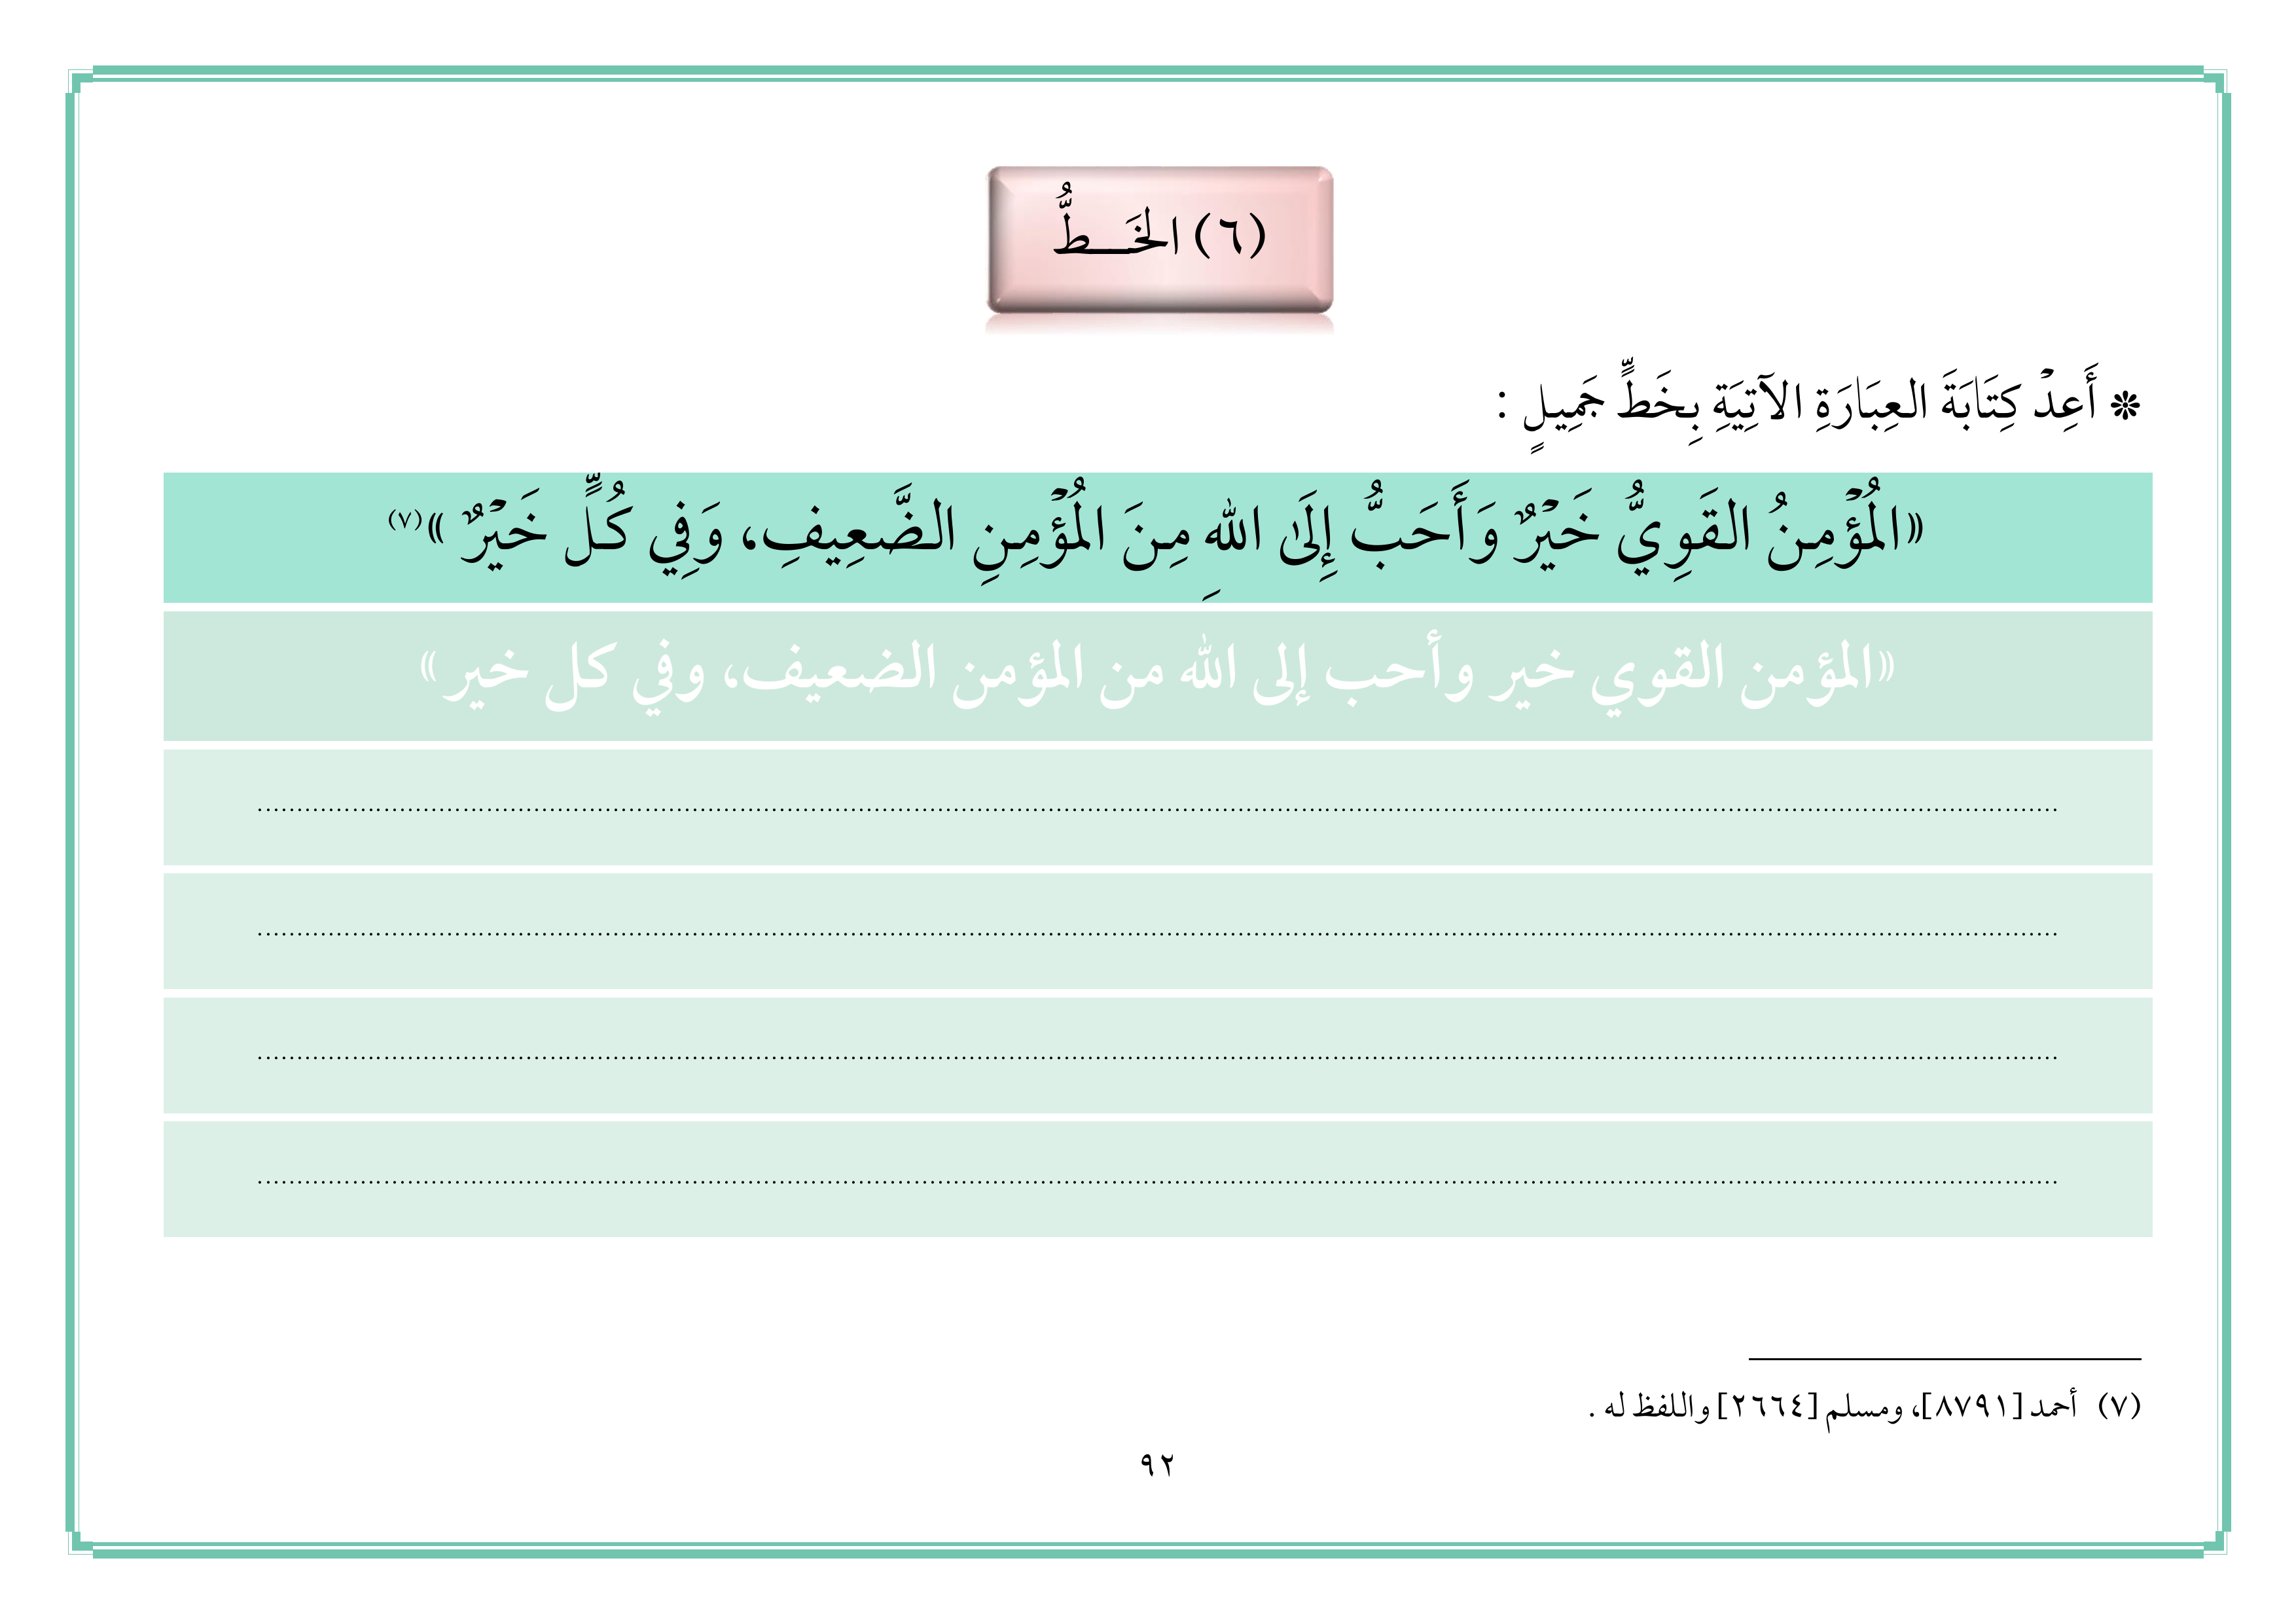 (٦) الخَـــطُّ
❊ أَعِدْ كِتَابَةَ العِبَارَةِ الآتِيَةِ بِخَطٍّ جَمِيلٍ :
«المُؤْمِنُ القَوِيُّ خَيْرٌ وَأَحَبُّ إِلَىٰ اللهِ مِنَ المُؤْمِنِ الضَّعِيفِ، وَفِي كُلٍّ خَيْرٌ »(٧)
«المؤمن القوي خير وأحب إلى الله من المؤمن الضعيف، وفي كل خير »
(٧) أحمد [٨٧٩١]، ومسلم [٢٦٦٤] واللفظ له .
٩٢